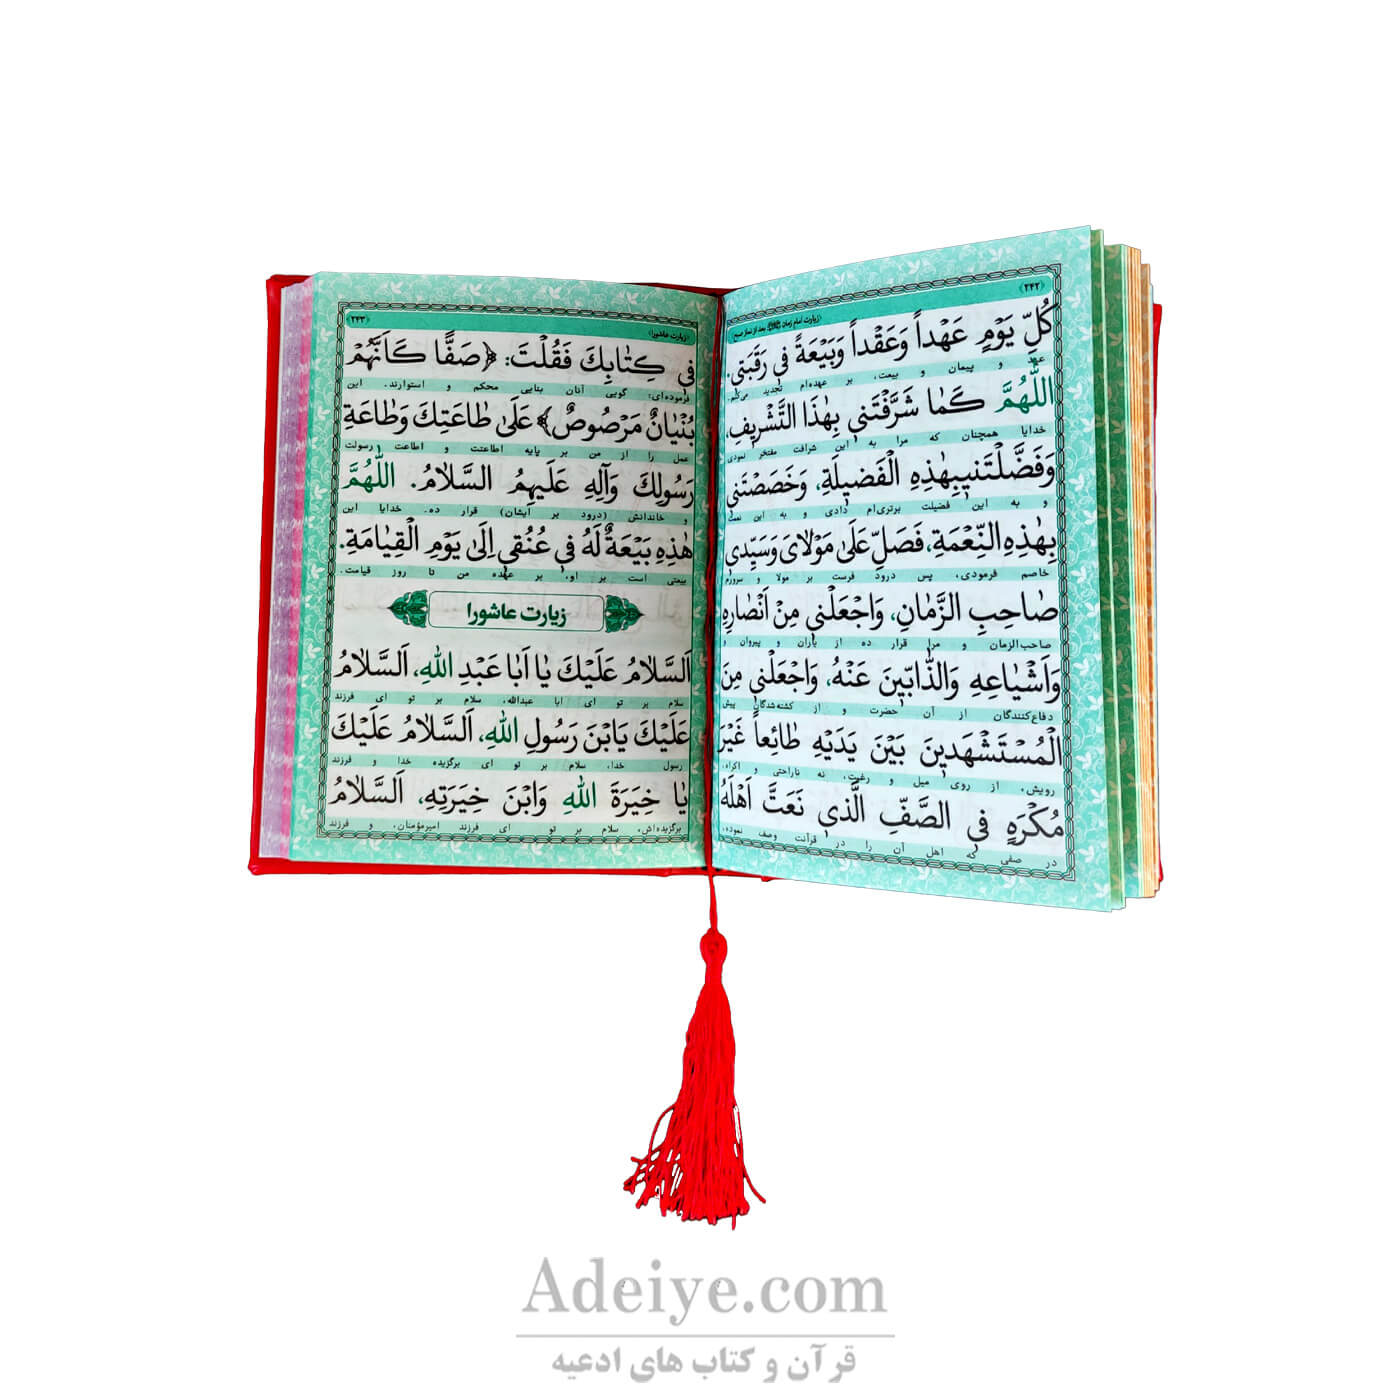 ﴿۲۴۲﴾
﴿زیارت امام زمان بعد از نماز صبح﴾
كُلِّ يَوْمٍ عَهْداً وَعَقْداً وَبَيْعَةً فِي رَقَبَتِي.
عهد و پیمان و بیعت، بر عهده‌ام تجدید می‌کنم.
اَللّٰهُمَّ كَمٰا شَرَّفْتَنِي بِهٰذَا التَّشْرِيفِ،
خدایا همچنان که مرا به این شرافت مفتخر نمودی
وَفَضَّلْتَنِيبِهٰذِهِ الْفَضِيلَةِ، وَخَصَصْتَنِي
و به این فضیلت برتری‌ام دادی و به این نعمت
بِهٰذِهِ النِّعْمَةِ، فَصَلِّ عَلىٰ مَوْلاٰيَ وَسَيِّدِي
خاصم فرمودی، پس درود فرست بر مولا و سرورم
صٰاحِبِ الزَّمٰانِ، وَاجْعَلْنِي مِنْ اَنْصٰارِهِ
صاحب‌الزمان و مرا قرار ده از یاران و پیروان و
وَاَشْيٰاعِهِ وَالذّٰابّينَ عَنْهُ، وَاجْعَلْنِي مِنَ
دفاع‌کنندگان از آن حضرت و از کشته‌شدگان پیش
الْمُسْتَشْهَدِينَ بَيْنَ يَدَيْهِ طٰائِعاً غَيْرَ
رویش، از روی میل و رغبت، نه ناراحتی و اکراه،
مُكْرَهٍ فِي الصَّفِّ الَّذِي نَعَتَّ اَهْلَهُ
در صفی که اهل آن را در قرآنت وصف نموده،
﴿زیارت عاشورا﴾
﴿۲۴۳﴾
فِي كِتٰابِكَ فَقُلْتَ: ﴿صَفًّا كَاَنَّهُمْ
فرموده‌ای: گویی آنان بنایی محکم و استوارند. این
بُنْيٰانٌ مَرْصُوصٌ﴾ عَلىٰ طٰاعَتِكَ وَطٰاعَةِ
عمل را از من بر پایه اطاعتت و اطاعت رسولت
رَسُولِكَ وَآلِهِ عَلَيْهِمُ السَّلاٰمُ. اَللّٰهُمَّ
و خاندانش (درود بر ایشان) قرار ده. خدایا این
هٰذِهِ بَيْعَةٌ لَهُ فِي عُنُقِي اِلىٰ يَوْمِ الْقِيٰامَةِ.
بیعتی است بر او، بر عهده من تا روز قیامت.
زیارت عاشورا
اَلسَّلاٰمُ عَلَيْكَ يٰا اَبٰا عَبْدِ اللّٰهِ، اَلسَّلاٰمُ
سلام بر تو ای ابا عبدالله، سلام بر تو ای فرزند
عَلَيْكَ يَابْنَ رَسُولِ اللّٰهِ، اَلسَّلاٰمُ عَلَيْكَ
رسول خدا، سلام بر تو ای برگزیده خدا و فرزند
يٰا خِيَرَةَ اللّٰهِ وَابْنَ خِيَرَتِهِ، اَلسَّلاٰمُ
برگزیده‌اش، سلام بر تو ای فرزند امیرمؤمنان، و فرزند
Adeiye.com
قرآن و کتاب های ادعیه